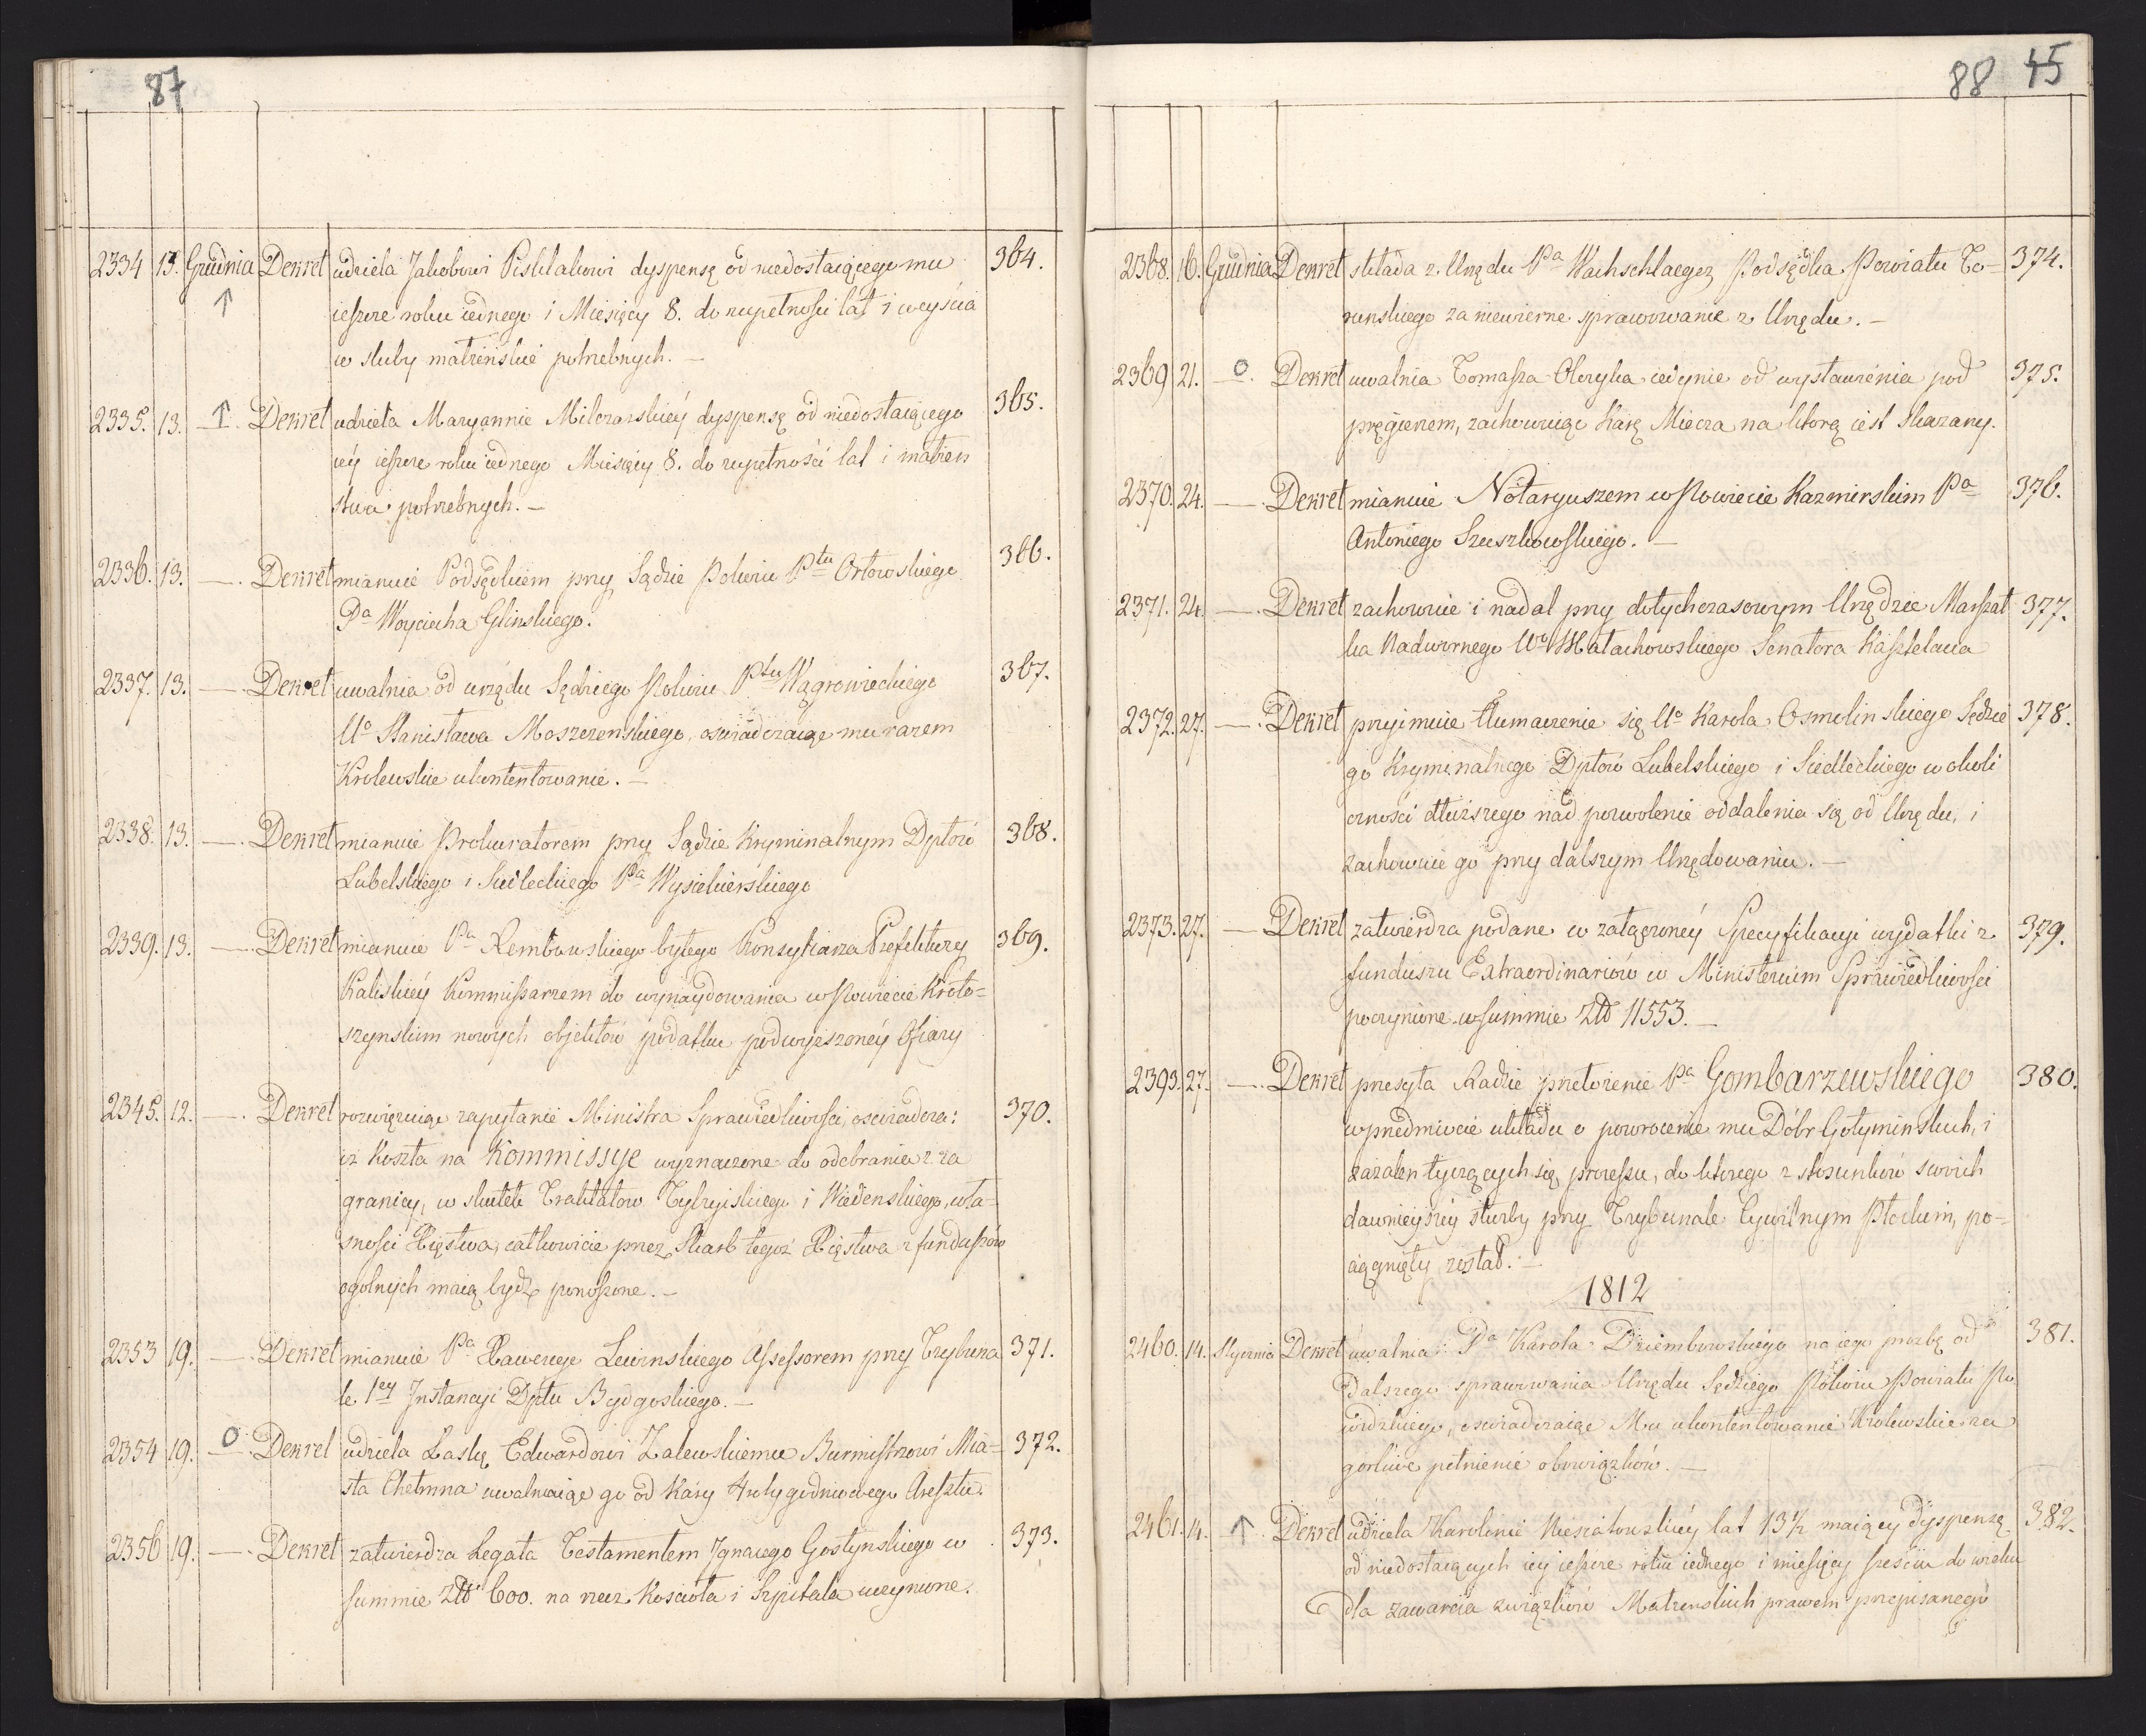 87
2334 13. Grudnia Dekret udziela Jakobowi Pisktakowi dyspensę od niedostaiącego mu 364.
ieszcze roku iednego i Miesięcy 8. do zupełności lat i weyścia
w sluby małzeńskie potrzebnych. —
2335. 13. — Dekret udziela Maryannie Milczarskiéy dyspensę od niedostaiącego 365.
iéy ieszcze roku iednego Miesięcy 8. do zupełności lat i małzen
stwa potrzebnych. —
2336. 13. —. Dekret mianuie Podsędkiem przy Sądzie Pokoiu Ptu Orłowskiego 366.
Pa Woyciecha Glinskiego.
2337. 13. —. Dekret uwalnia od urzędu Sędziego Pokoiu Ptu Wągrowieckiego 367.
Uo Stanisława Moszczenskiego, oswiadczaiąc mu razem
Krolewskie ukontentowanie. —
2338. 13. —. Dekret mianuie Prokuratorem przy Sądzie Kryminalnym Dptow 368.
Lubelskiego i Siedleckiego Pa Wysiekierskiego
2339. 13. —. Dekret mianuie Pa Rembowskiego byłego Konsyliarza Prefektury 369.
Kaliskiéy Kommissarzem do wynaydowania w Powiecie Kroto=
szynskim nowych objektów podatku podwyższonéy Ofiary
2345. 12. —. Dekret rozwięzuiąc zapytanie Ministra Sprawiedliwości, oswiadcza: 370.
iż Koszta na Kommissye wyznaczone do odebrania z za
granicy, w skutek Traktatow Tylzyiskiego i Wiedenskiego, wła=
sności Xięstwa, całkowicie przez Skarb tegoż Xięstwa z funduszów
ogolnych maią bydź ponoszone. —
2353 19. —. Dekret mianuie Pa Xawerego Lewinskiego Assessorem przy Trybuna 371.
le 1ey Instancyi Dptu Bydgoskiego. —
2354 19. —. Dekret udziela Łaskę Edwardowi Zalewskiemu Burmistrzowi Mia= 372.
sta Chełmna uwalniaiąc go od Kary 4roTygodniowego Aresztu.
2356 19. —. Dekret zatwierdza Legata Testamentem Ignacego Gostynskiego w 373.
summie Złł 600. na rzecz Kościoła i Szpitala uczynione.
88 45
2368. 16. Grudnia Dekret składa z Urzędu Pa Wachschlaeger Podsędka Powiatu To= 374.
runskiego za niewierne sprawowanie z Urzędu. —
2369 21. —. Dekret uwalnia Tomasza Olczyka iedynie od wystawienia pod 375.
pręgierem, zachowuiąc Karę Miecza na ktorą iest skazany.
2370. 24. —. Dekret mianuie Notaryuszem w Powiecie Kazmirskim Pa 376.
Antoniego Szeszkowskiego. —
2371. 24. —. Dekret zachowuie i nadal przy dotychczasowym Urzędzie Marszał 377.
ka Nadwornego Wo Małachowskiego Senatora Kasztelana
2372. 27. —. Dekret przyimuie tłumaczenie się Uo Karola Osmolinskiego Sędzie 378.
go Kryminalnego Dptow Lubelskiego i Siedleckiego w okoli
czności dłuższego nad pozwolenie oddalenia się od Urzędu, i
zachowuie go przy dalszym Urzędowaniu. —
2373. 27. — Dekret zatwierdza podane w załączonéy Specyfikacyi wydatki z 379.
funduszu Extraordinariów w Ministerium Sprawiedliwości
poczynione w summie Złł 11553. —
2393. 27. —. Dekret przesyła Radzie przełożenie Pa Gombarzewskiego 380.
w przedmiocie układu o powrocenie mu Dóbr Gołyminskich, i
zażaleń tyczących się processu, do ktorego z stosunków swoich
dawnieyszéy służby przy Trybunale Cywilnym Płockim, po=
ciągnięty został. —
1812
2460. 14. Stycznia Dekret uwalnia Pa Karola Dziembowskiego na iego prozbę od 381.
Dalszego sprawowania Urzędu Sędziego Pokoiu Powiatu Po
widzkiego, oswiadczaiąc Mu ukontentowanie Krolewskie za
gorliwe pełnienie obowiązków. —
2461. 14. Dekret udziela Karolinie Niesiołowskiéy lat 13½ maiącey dyspensę 382.
od niedostaiących iey ieszcze roku iednego i miesięcy sześciu do wieku
dla zawarcia związków Małzenskich prawem przepisanego